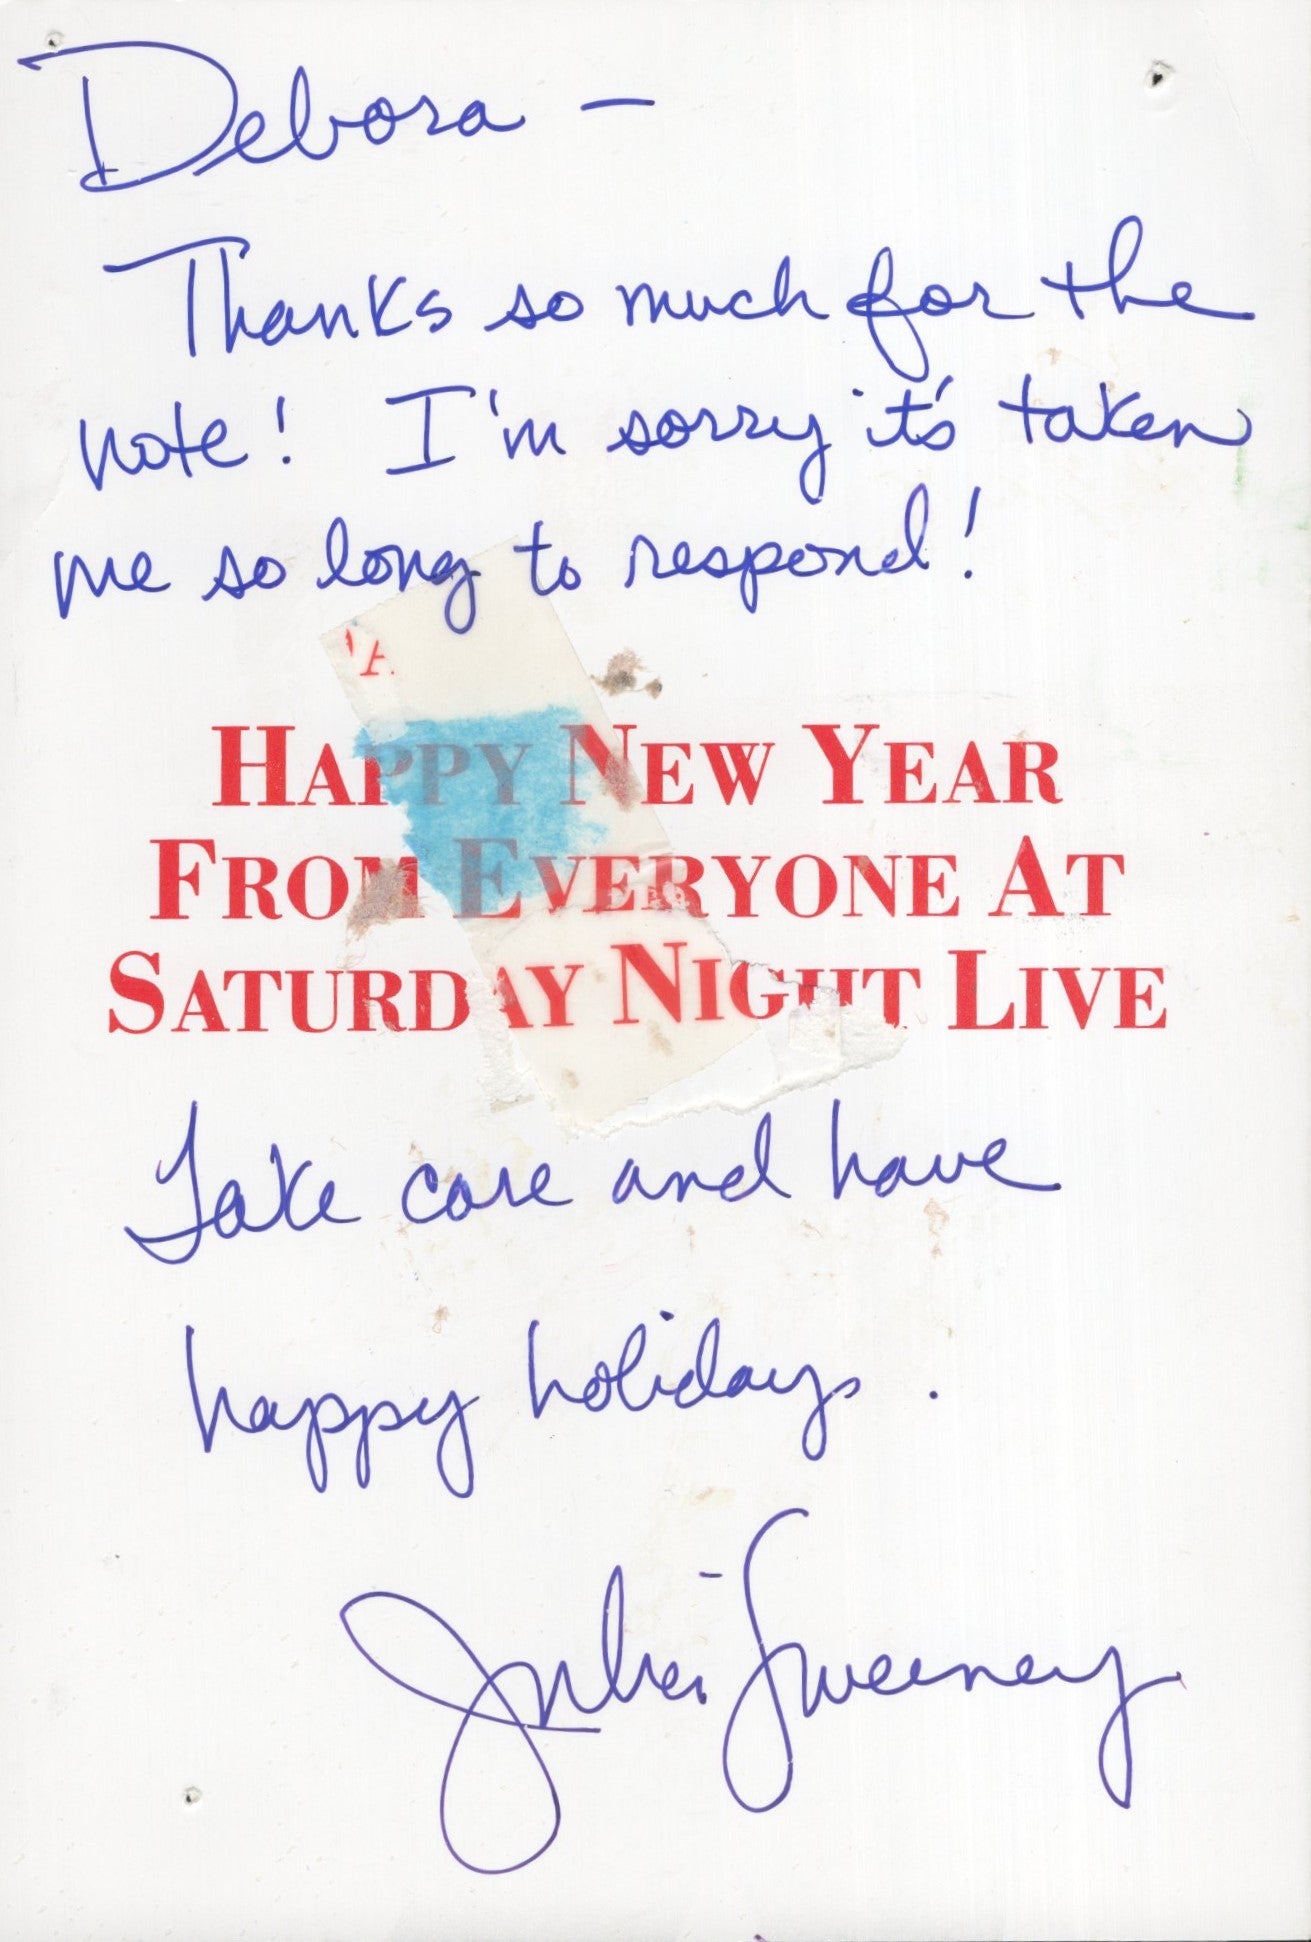 Debora —
Thanks so much for the
note! I'm sorry it's taken
me so long to respond!
HAPPY NEW YEAR
FROM EVERYONE AT
SATURDAY NIGHT LIVE
Take care and have
happy holidays.
Julia Sweeney